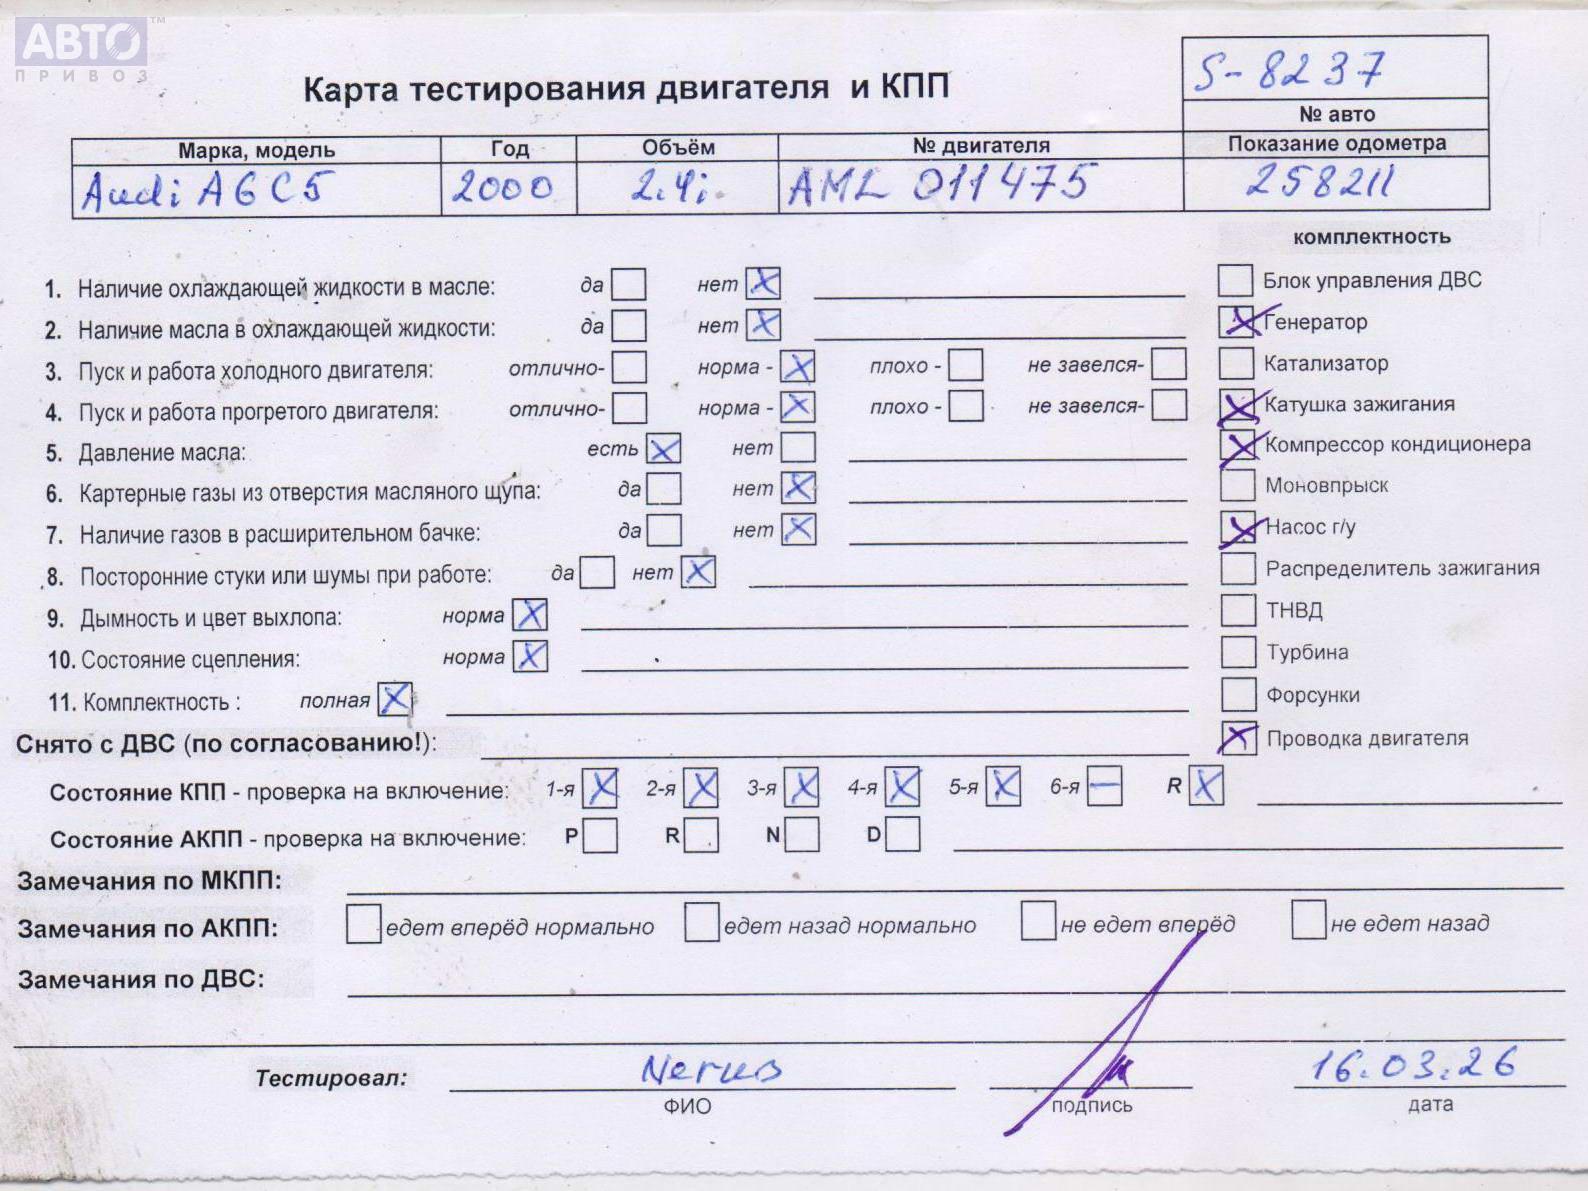 АВТО ™
ПРИВОЗ
S-8237
Карта тестирования двигателя и КПП
№ авто
Марка, модель Год Объём № двигателя Показание одометра
Audi A6 C5 2000 2.4i AML 011475 258211
комплектность
1. Наличие охлаждающей жидкости в масле: да нет X
Блок управления ДВС
2. Наличие масла в охлаждающей жидкости: да нет X
X Генератор
3. Пуск и работа холодного двигателя: отлично- норма - X плохо - не завелся-
Катализатор
4. Пуск и работа прогретого двигателя: отлично- норма - X плохо - не завелся-
X Катушка зажигания
5. Давление масла: есть X нет
X Компрессор кондиционера
6. Картерные газы из отверстия масляного щупа: да нет X
Моновпрыск
7. Наличие газов в расширительном бачке: да нет X
X Насос г/у
8. Посторонние стуки или шумы при работе: да нет X
Распределитель зажигания
9. Дымность и цвет выхлопа: норма X
ТНВД
10. Состояние сцепления: норма X
Турбина
11. Комплектность : полная X
Форсунки
Снято с ДВС (по согласованию!):
X Проводка двигателя
Состояние КПП - проверка на включение: 1-я X 2-я X 3-я X 4-я X 5-я X 6-я — R X
Состояние АКПП - проверка на включение: P R N D
Замечания по МКПП:
Замечания по АКПП: едет вперёд нормально едет назад нормально не едет вперёд не едет назад
Замечания по ДВС:
Тестировал: 16.03.26
ФИО подпись дата